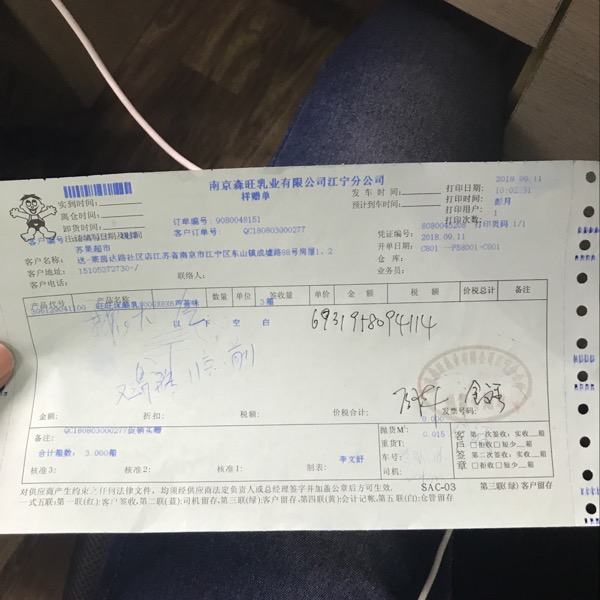 南京森旺乳业有限公司江宁分公司
样赠单
实到时间:
离仓时间:
卸货时间:
订单编号: 9080048151
客户订单号: QC180803000277
发车时间:
预计到车时间:
打印日期: 2018.09.11
打印时间: 10:02:31
打印用户: 彭月
打印次数: 1
打印页码 1/1
凭证编号: 8080045208
开单日期: 2018.09.11
仓库: C801
业务员:
客户编号:
客户名称: 苏果超市
客户地址: 送-莱茵达路社区店江苏省南京市江宁区东山镇成墟路88号房屋1、2
客户电话: 15105272730-/
联系人:
产品代号 产品名称 数量 单位 签收量 单价 金额 税额 价税总计 备注
3箱
以下空白
6931958094114
11点前
金额: 折扣: 税额: 价税合计: 发票号码:
0.000
备注: QC180803000277促销买赠
合计箱数: 3.000箱
抛货M³: 0.015
重货T:
车号:
司机:
客户签章
第一次签收:实收__箱
□拒收□短少__箱
第二次签收:实收__箱
□拒收□短少__箱
核准3: 核准2: 核准1: 制表: 李文舒
对供应商产生约束之任何法律文件,均须经供应商法定负责人或总经理签字并加盖公章后方可生效. SAC-03 第三联(绿)客户留存
一式五联:第一联(红):客户签收,第二联(蓝):司机留存,第三联(绿):客户留存,第四联(黄):会计记帐,第五联(白):仓管留存